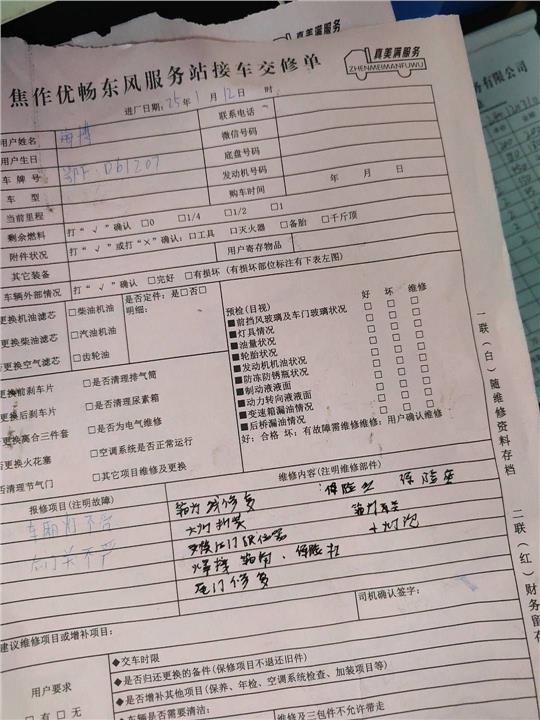 真美满服务
ZHENMEIMANFUWU
焦作优畅东风服务站接车交修单
务有限公司
进厂日期：25年1月12日 时
用户姓名
联系电话
用户生日
微信号码
车牌号 鄂F：D61207
底盘号码
车型
发动机号码
当前里程
购车时间 年 月 日
剩余燃料 打“√”确认 □0 □1/4 □1/2 □1
附件状况 打“√”或打“×”确认：□工具 □灭火器 □备胎 □千斤顶
其它装备
用户寄存物品
车辆外部情况 打“√”确认 □完好 □有损坏（有损坏部位标注有下表左图）
更换机油滤芯 □柴油机油
是否定件：是□否□
明细：
更换柴油滤芯 □汽油机油
更换空气滤芯 □齿轮油
预检（目视） 好 坏 维修
■前挡风玻璃及车门玻璃状况 □ □ □
■灯具情况 □ □ □
■油量状况 □ □ □
■轮胎状况 □ □ □
■发动机机油状况 □ □ □
■防冻防锈瓶状况 □ □ □
■制动液液面 □ □ □
■动力转向液液面 □ □ □
■变速箱漏油情况 □ □ □
■后桥漏油情况 □ □ □
好：合格 坏：有故障需维修维修：用户确认维修
更换前刹车片 □是否清理排气筒
更换后刹车片 □是否清理尿素箱
更换离合三件套 □是否为电气维修
更换火花塞 □空调系统是否正常运行
否清理节气门 □其它项目维修及更换
报修项目（注明故障）
维修内容（注明维修部件）
车厢灯不亮
后门关不严
大灯拆装
尾门修复
司机确认签字：
建议维修项目或增补项目：
用户要求
□有 □无
◆交车时限
◆是否归还更换的备件（保修项目不退还旧件）
◆是否增补其他项目（保养、年检、空调系统检查、加装项目等）
◆车辆是否需要清洁：
维修及三包件不允许带走
一联（白）随维修资料存档
二联（红）财务留存